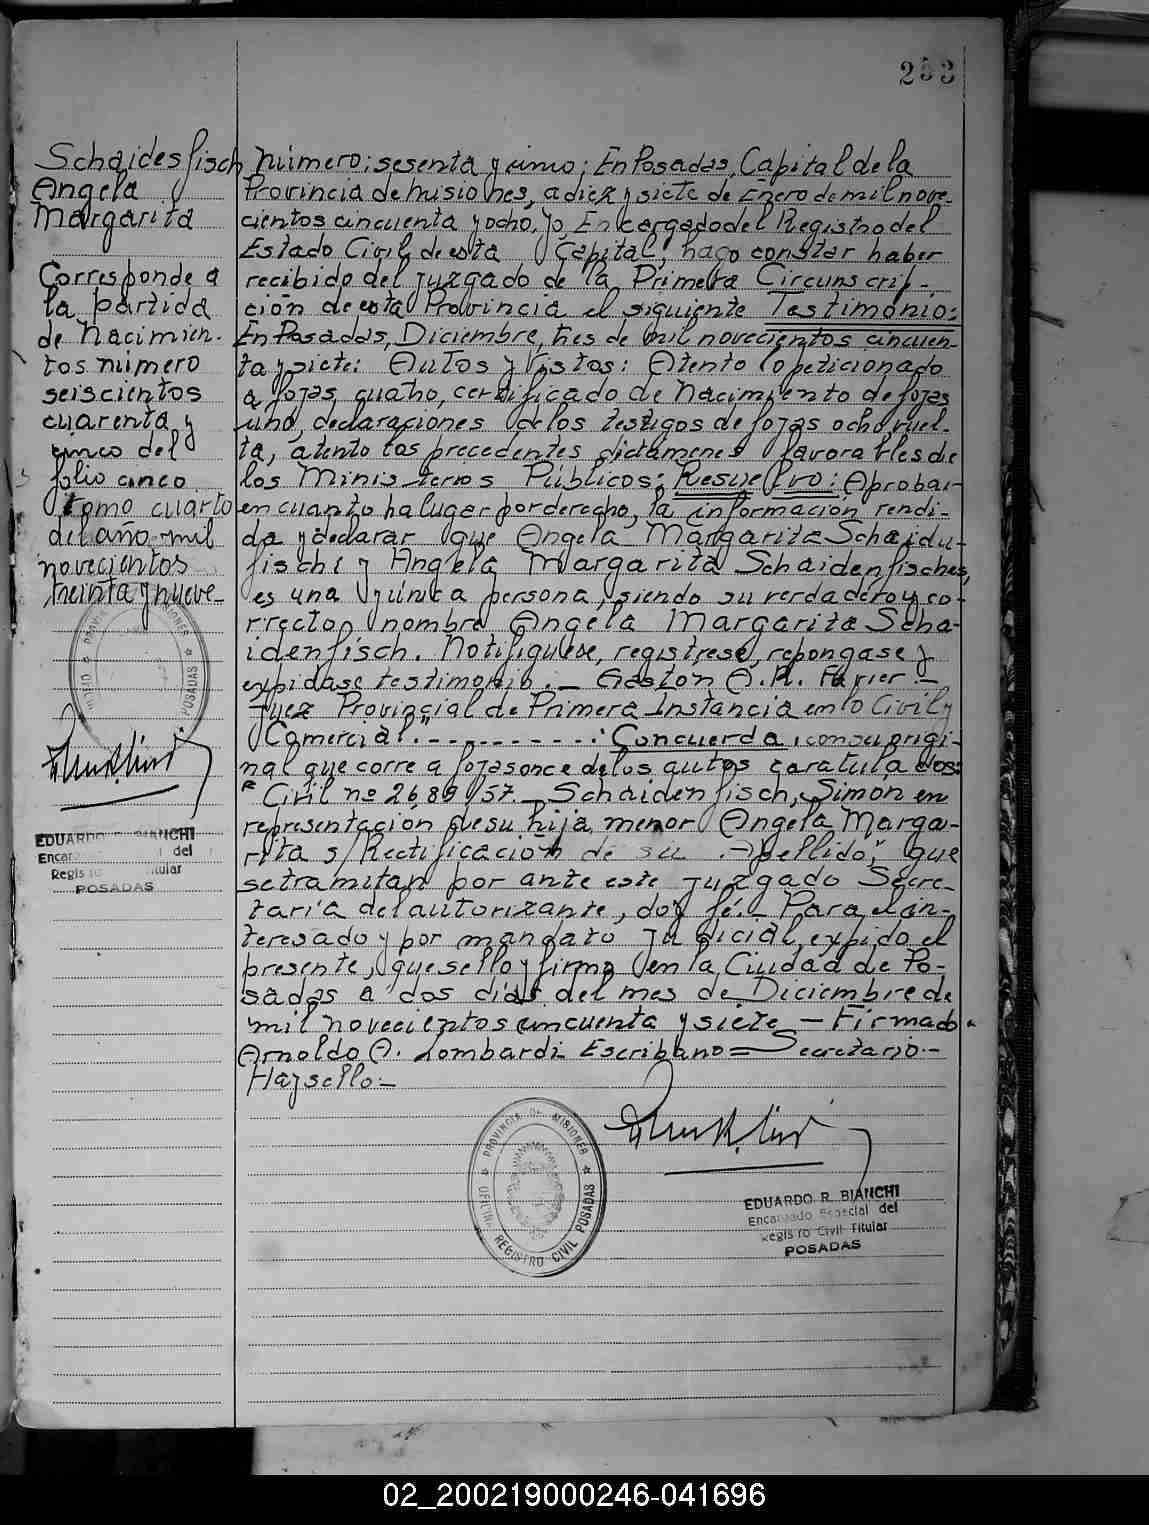 253
Schaidesfisch
Angela
Margarita
Corresponde a
la partida
de Nacimien-
tos número
seiscientos
cuarenta y
cinco del
folio cinco
tomo cuarto
del año mil
novecientos
treinta y nueve-
PROVINCIA MISIONES
POSADAS
EDUARDO R. BIANCHI
Encar del
Regis ro itular
POSADAS
Número: sesenta y uno; En Posadas, Capital de la
Provincia de Misiones, a diez y siete de Enero de mil nove-
cientos cincuenta y ocho, yo, Encargado del Registro del
Estado Civil de esta Capital, hago constar haber
recibido del Juzgado de la Primera Circunscrip-
ción de esta Provincia el siguiente Testimonio:
En Posadas, Diciembre, tres de mil novecientos cincuen-
ta y siete: Autos y Vistos: Atento lo peticionado
a fojas cuatro, certificado de Nacimiento de fojas
uno, declaraciones de los testigos de fojas ocho vuel-
ta, atento los precedentes dictamenes favorables de
los Ministerios Públicos: Resuelvo: Aprobar
en cuanto ha lugar por derecho, la información rendi-
da y declarar que Angela Margarita Schaidu-
fischi y Angela Margarita Schaidenfisches,
es una y única persona, siendo su verdadero y co-
rrecto nombre Angela Margarita Scha-
idenfisch. Notifiquese, registrese, repongase y
expidase testimonio.- Gastón A. R. Favier.-
Juez Provincial de Primera Instancia en lo Civil y
Comercial".-.-.-.-.-.-: Concuerda, con su origi-
nal que corre a fojas once de los autos caratulados:
"Civil nº 2689/57.- Schaidenfisch, Simón en
representación de su hija menor Angela Marga-
rita s/Rectificación de su Apellido," que
se tramitan por ante este Juzgado Secre-
taría del autorizante, doy fé.- Para el in-
teresado y por mandato judicial, expido el
presente, que sello y firmo en la Ciudad de Po-
sadas a dos días del mes de Diciembre de
mil novecientos cincuenta y siete - Firmado.
Arnoldo A. Lombardi Escribano = Secretario.-
Hay sello.-
PROVINCIA DE MISIONES
OFICINA REGISTRO CIVIL POSADAS
EDUARDO R. BIANCHI
Encargado Especial del
Regis ro Civil Titular
POSADAS
02_200219000246-041696